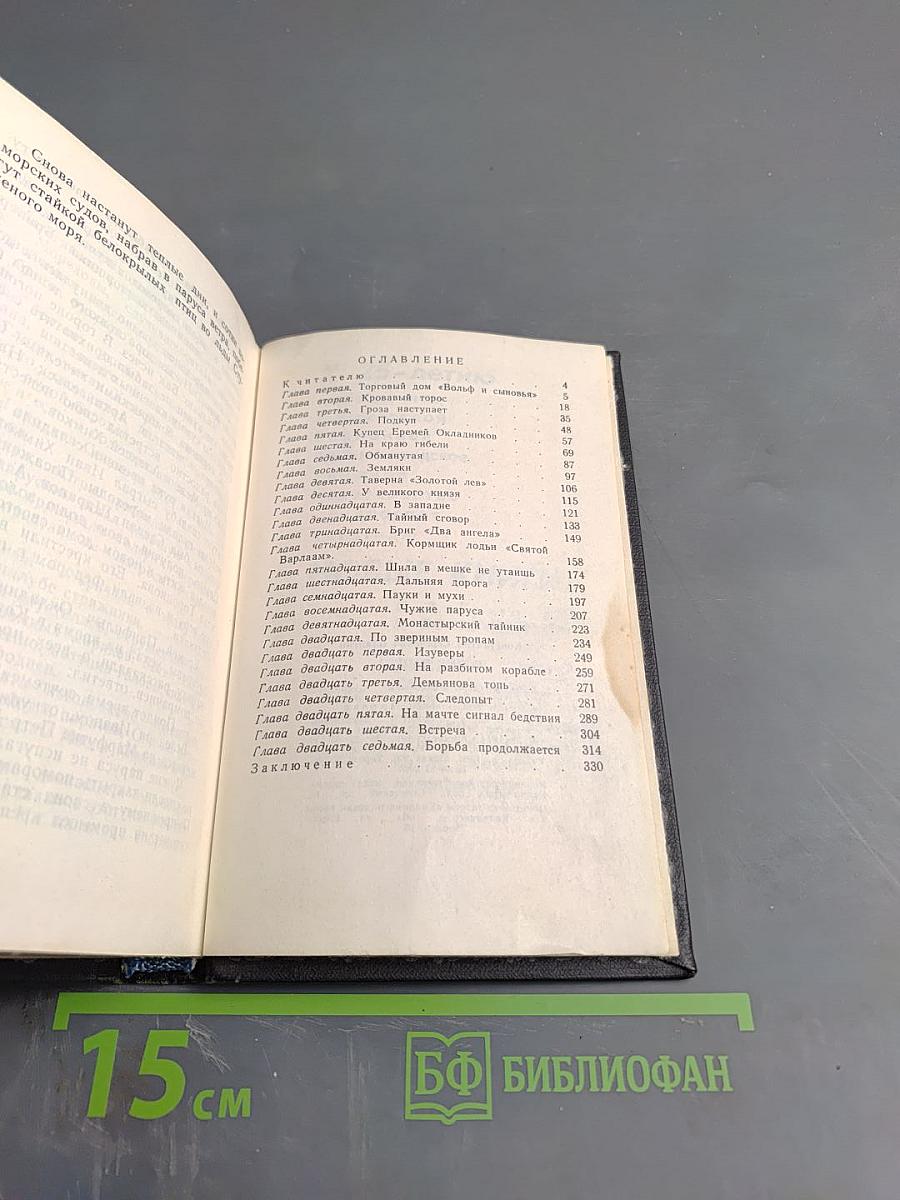 Снова настанут теплые дни, и сотни
морских судов, набрав в паруса ветра, побе-
гут стайкой белокрылых птиц во льды Сту-
деного моря.
ОГЛАВЛЕНИЕ
К читателю . . . . 4
Глава первая. Торговый дом «Вольф и сыновья» 5
Глава вторая. Кровавый торос . . . . 18
Глава третья. Гроза наступает . . . . 35
Глава четвертая. Подкуп . . . . 48
Глава пятая. Купец Еремей Окладников . . 57
Глава шестая. На краю гибели . . . . 69
Глава седьмая. Обманутая . . . . 87
Глава восьмая. Земляки . . . . 97
Глава девятая. Таверна «Золотой лев» . . . 106
Глава десятая. У великого князя . . . . 115
Глава одиннадцатая. В западне . . . . 121
Глава двенадцатая. Тайный сговор . . . . 133
Глава тринадцатая. Бриг «Два ангела» . . . 149
Глава четырнадцатая. Кормщик лодьи «Святой
Варлаам». . . . . 158
Глава пятнадцатая. Шила в мешке не утаишь . 174
Глава шестнадцатая. Дальняя дорога . . . 179
Глава семнадцатая. Пауки и мухи . . . . 197
Глава восемнадцатая. Чужие паруса . . . 207
Глава девятнадцатая. Монастырский тайник . 223
Глава двадцатая. По звериным тропам . . . 234
Глава двадцать первая. Изуверы . . . . 249
Глава двадцать вторая. На разбитом корабле . 259
Глава двадцать третья. Демьянова топь . . 271
Глава двадцать четвертая. Следопыт . . . 281
Глава двадцать пятая. На мачте сигнал бедствия 289
Глава двадцать шестая. Встреча . . . . 304
Глава двадцать седьмая. Борьба продолжается 314
Заключение . . . . 330
15 см
БФ БИБЛИОФАН